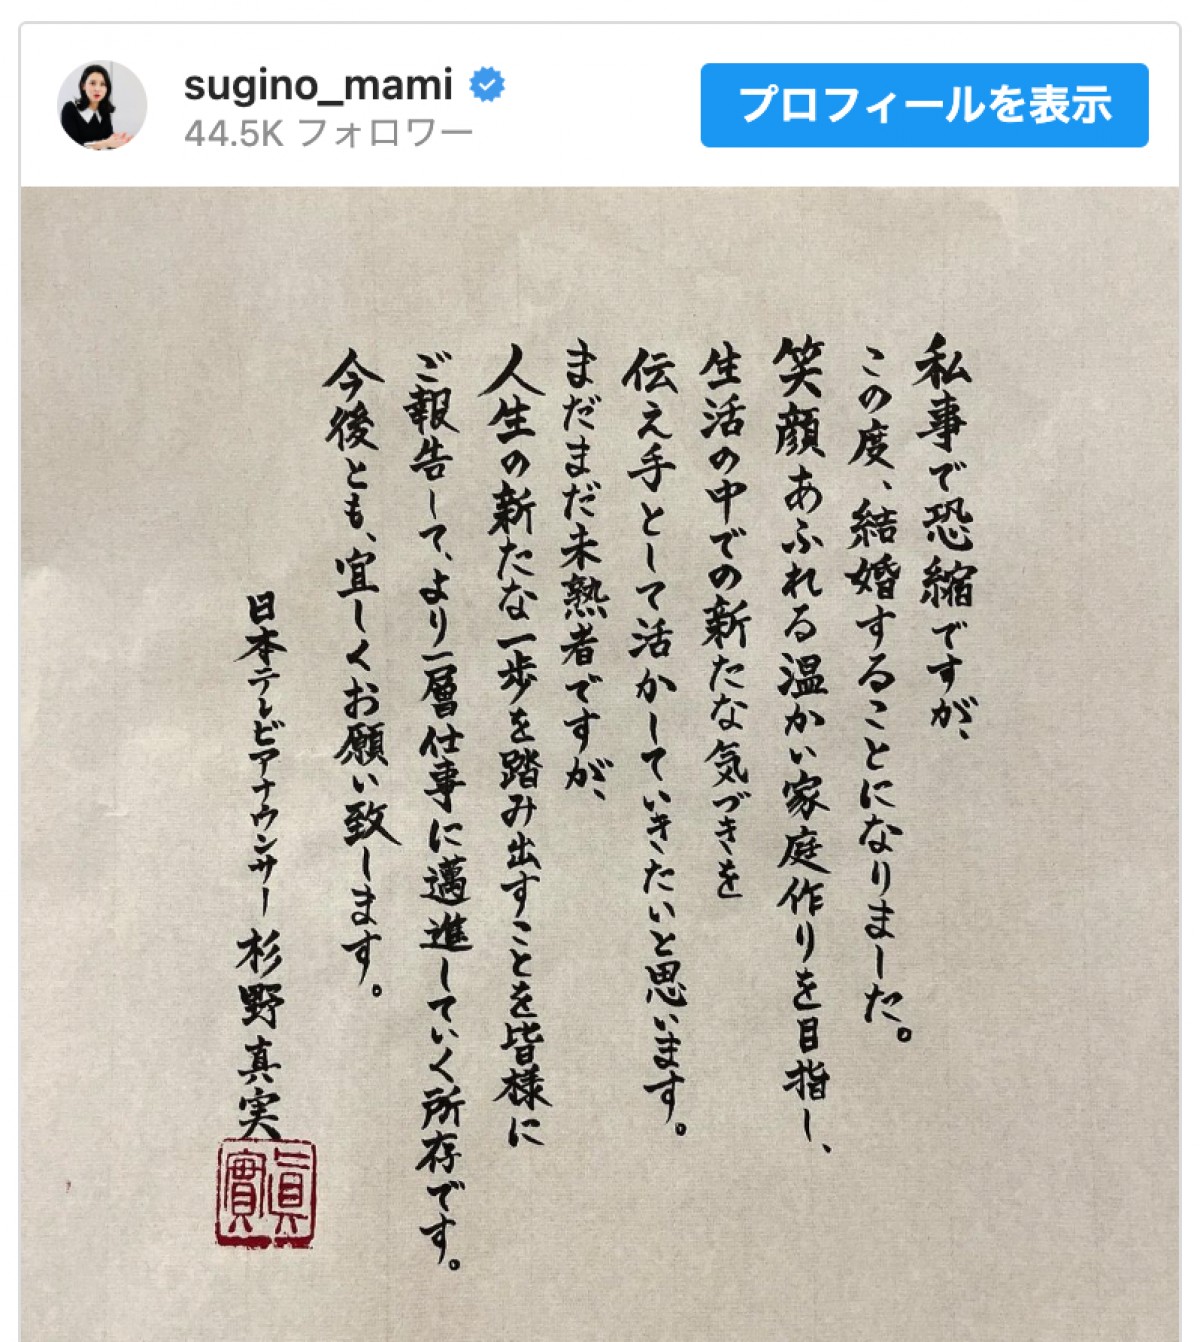 sugino_mami
44.5K フォロワー
プロフィールを表示
私事で恐縮ですが、
この度、結婚することになりました。
笑顔あふれる温かい家庭作りを目指し、
生活の中での新たな気づきを
伝え手として活かしていきたいと思います。
まだまだ未熟者ですが、
人生の新たな一歩を踏み出すことを皆様に
ご報告して、より一層仕事に邁進していく所存です。
今後とも、宜しくお願い致します。
日本テレビアナウンサー 杉野真実
眞實